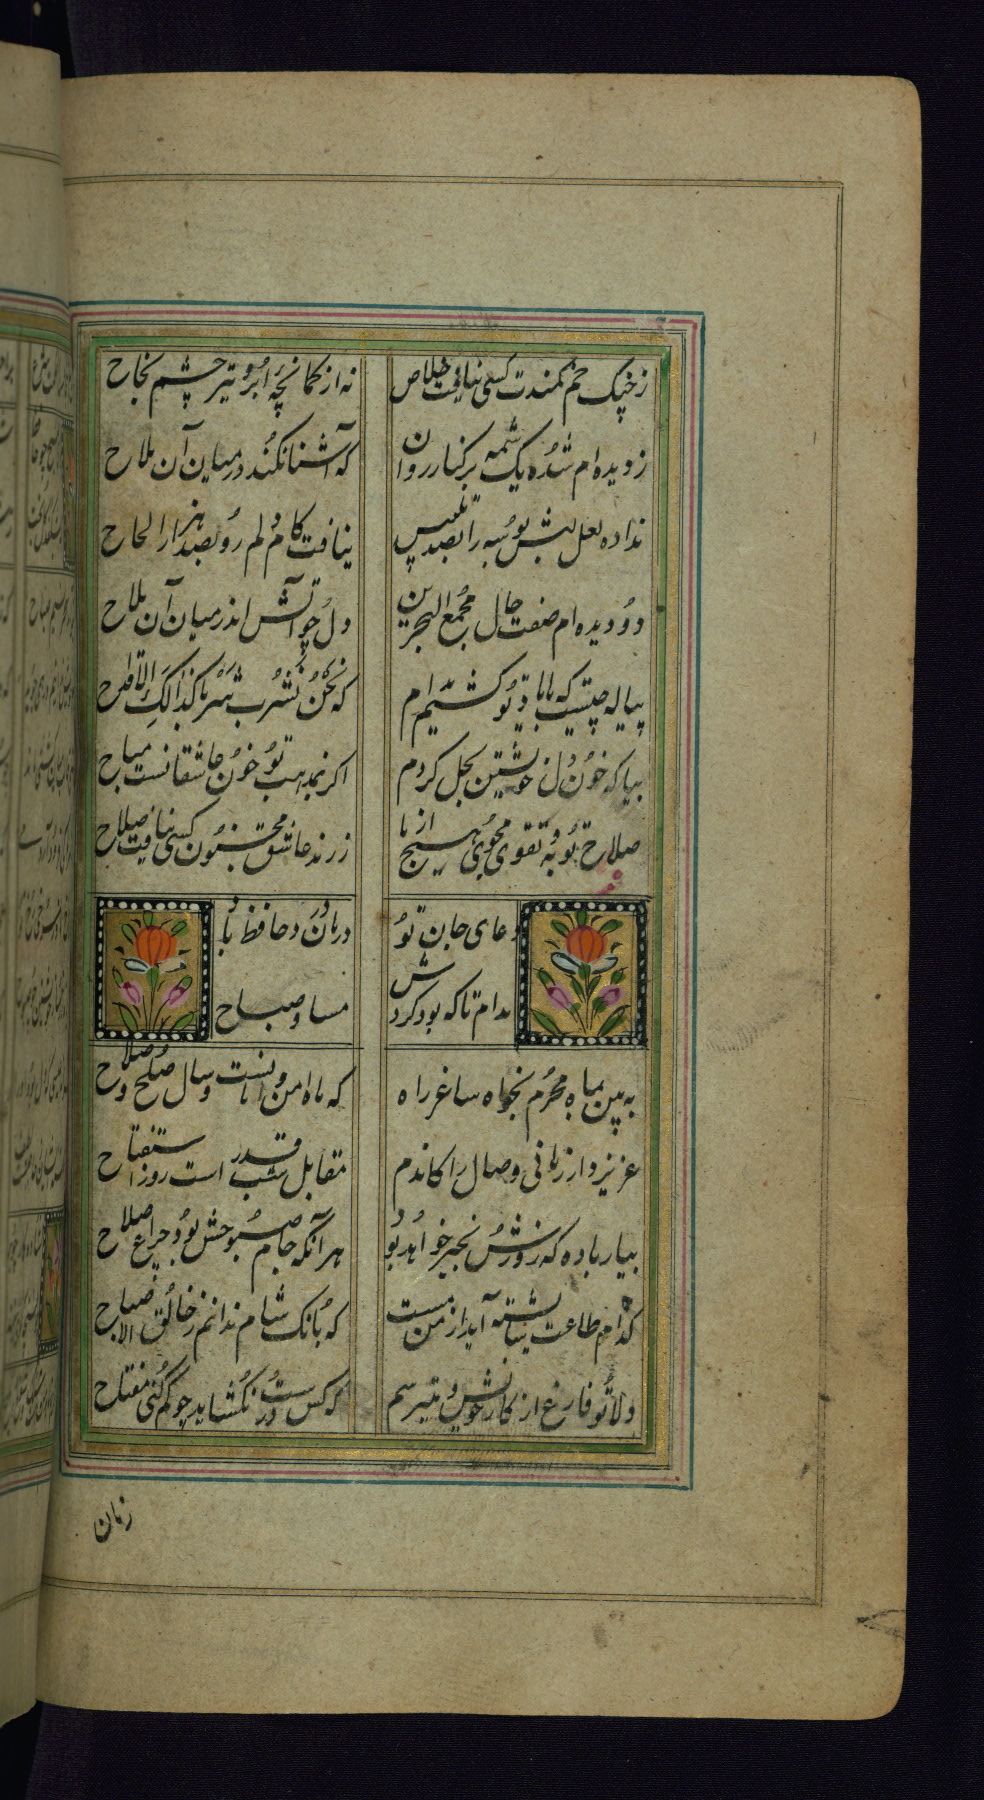 ز چنک خم کمندت کسی نیافت خلاص نه از کمانچه ابرو و تیر چشم نجاح
ز دیده ام شده یک چشمه بر کنار روان که آشنا نکند در میان آن ملاح
نداده لعل لبش بوسه را بصد تلبیس نیافت کام دلم زو بصد هزار الحاح
دو دیده ام صفت حال مجمع البحرین دل چو آتش اندر میان آن ملاح
پیاله چیست که با یاد تو کشیم مدام که نحن نشرب شربا کذلک الاقداح
بیا که خون دل خویشتن بحل کردم اکر بمذهب تو خون عاشقانست مباح
صلاح و توبه و تقوی مجوی هیچ از ما ز رند عاشق مجنون کسی نیافت صلاح
دعای جان تو ورد زبان حافظ باد
مدام تا که بود کردش مسا و صباح
به بین بماه محرم نجواه ساغر راه که ماه امن و امانست و سال صلح و صلاح
عزیز دار زمانی وصال را کاندم مقابل شب قدر است روز استفتاح
بیار باده که روزش بخیر خواهد بود هر آنکه جام صبوحش بود چراغ صلاح
کدام طاعت شایسته آید از من مست که بانک شام ندانم ز خالق الاصباح
دلا تو فارغ از کار خویش و میترسم که کس درت نکشاید چو کم کنی مفتاح
زمان